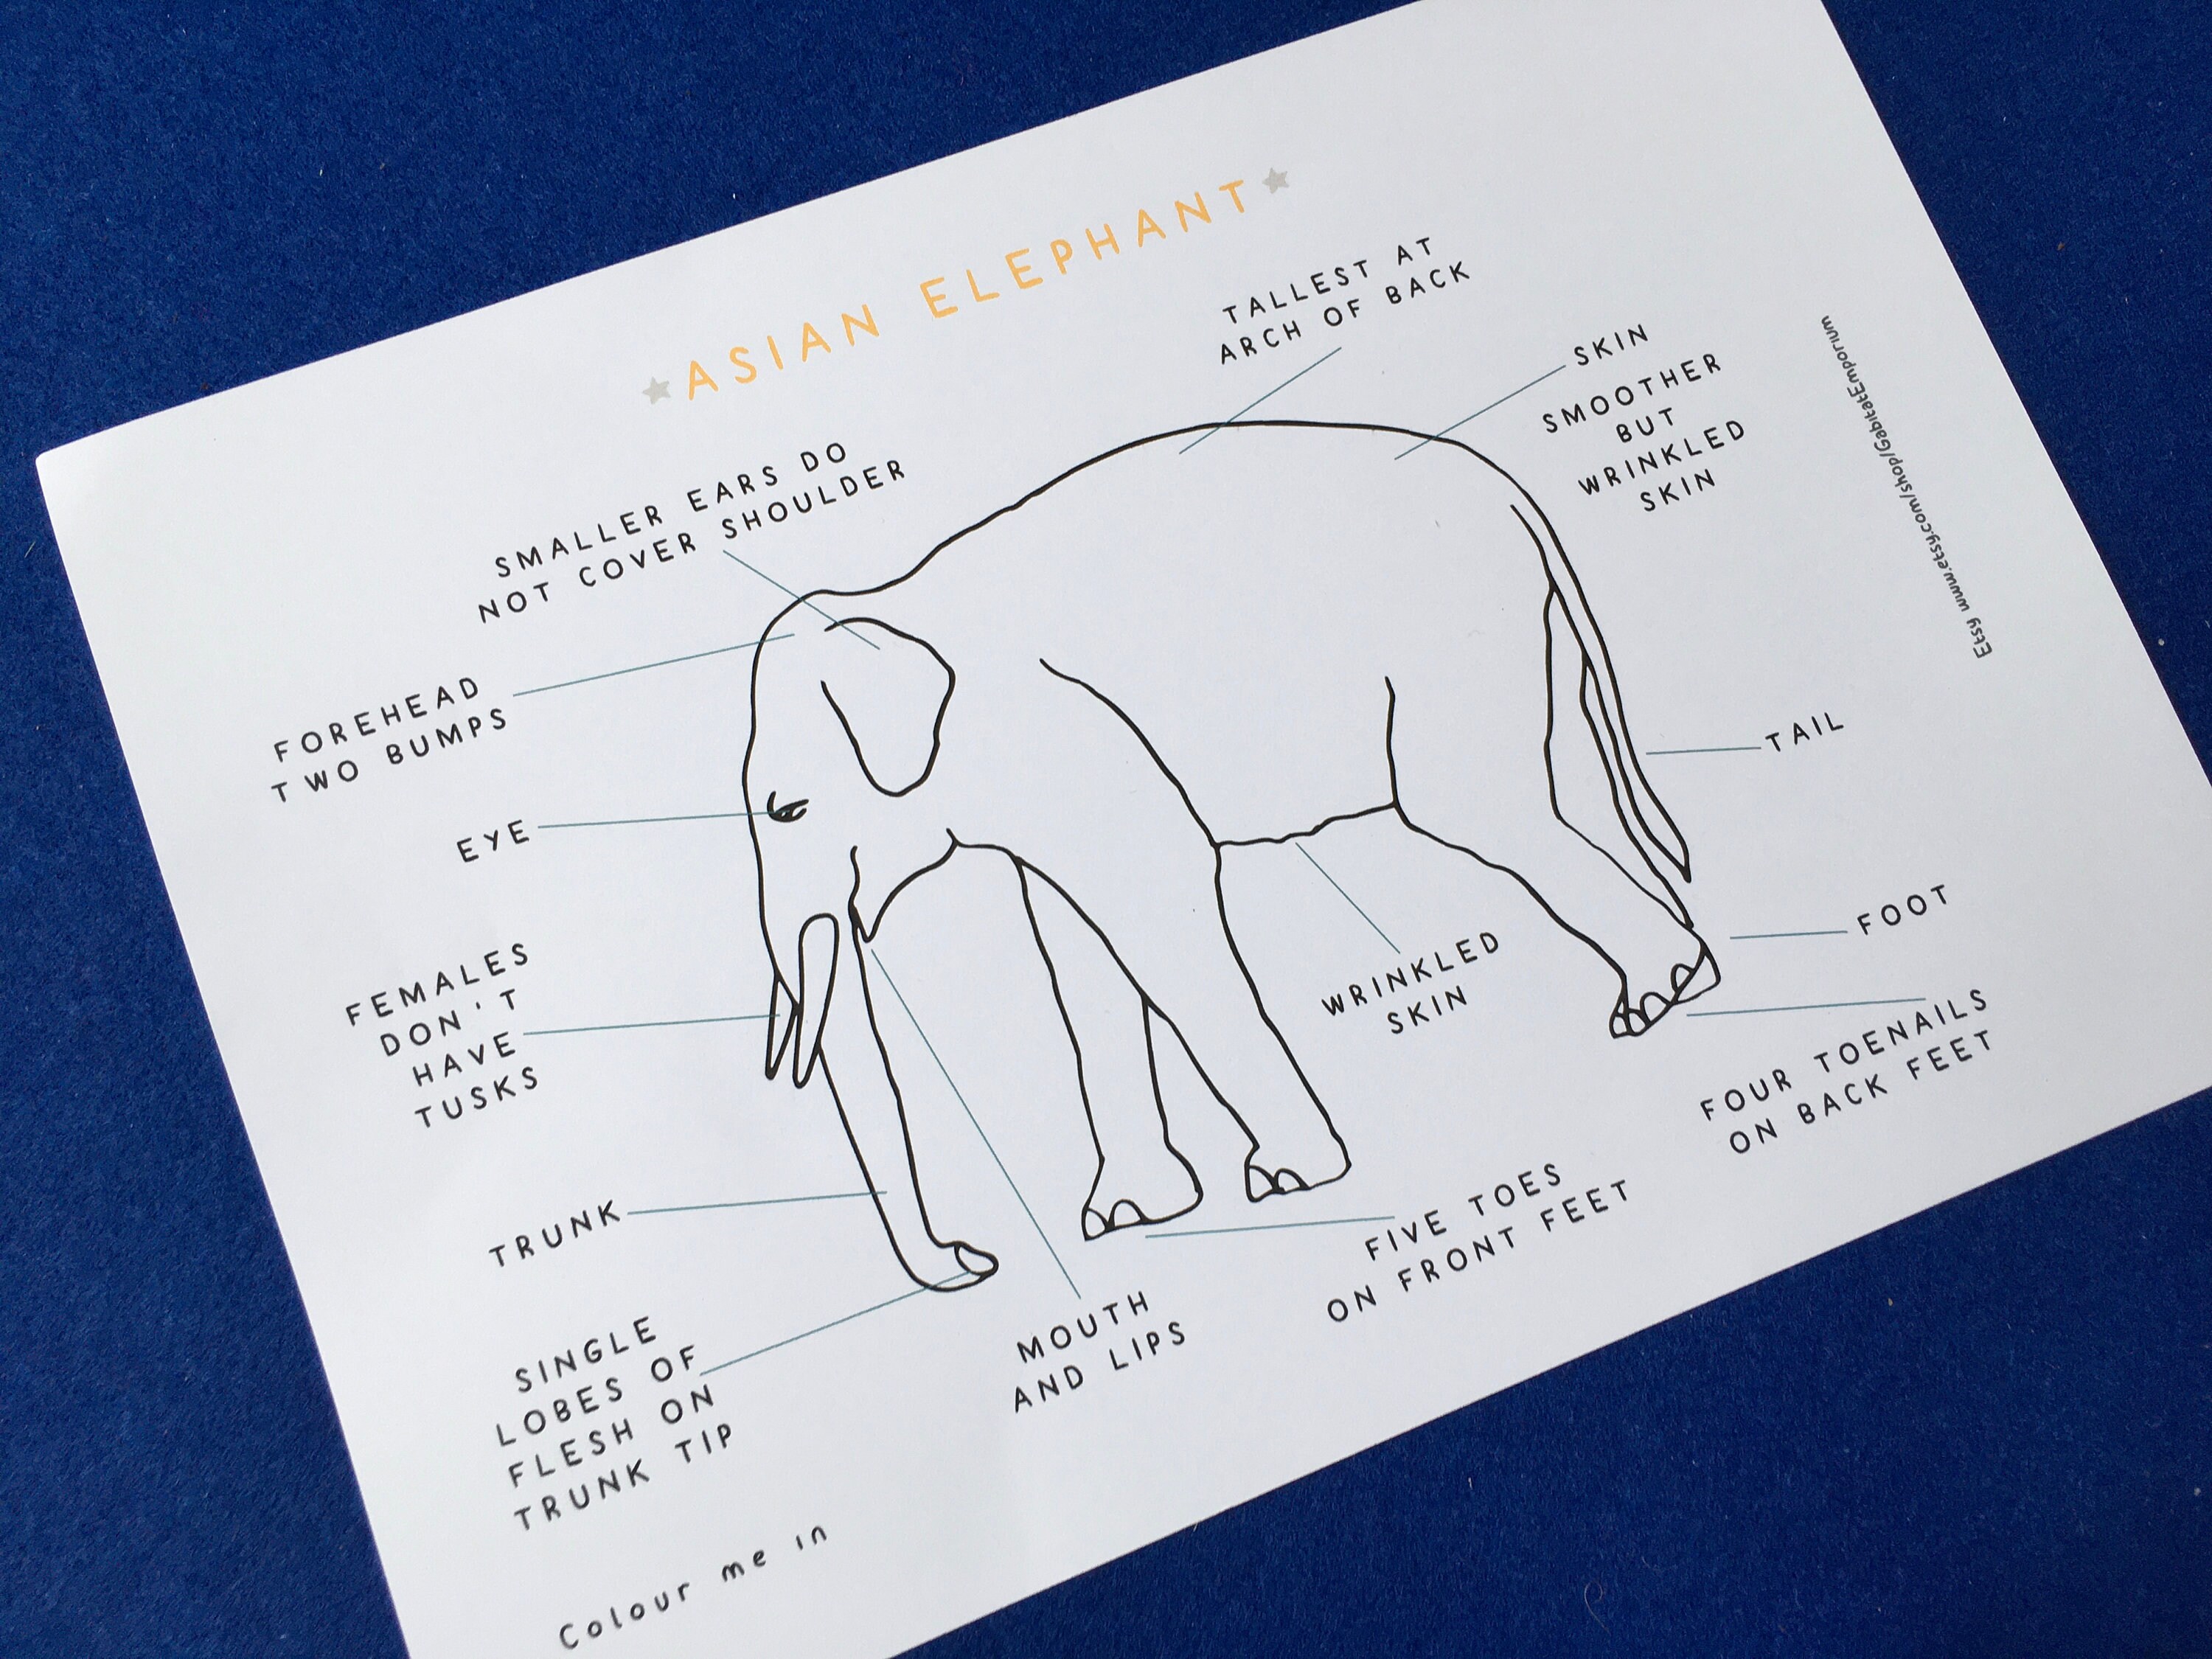 ASIAN ELEPHANT
TALLEST AT
ARCH OF BACK
SKIN
SMOOTHER
BUT
WRINKLED
SKIN
SMALLER EARS DO
NOT COVER SHOULDER
FOREHEAD
TWO BUMPS
EYE
FEMALES
DON'T
HAVE
TUSKS
TRUNK
SINGLE
LOBES OF
FLESH ON
TRUNK TIP
MOUTH
AND LIPS
WRINKLED
SKIN
FIVE TOES
ON FRONT FEET
TAIL
FOOT
FOUR TOENAILS
ON BACK FEET
Colour me in
Etsy www.etsy.com/shop/GabitatEmporium